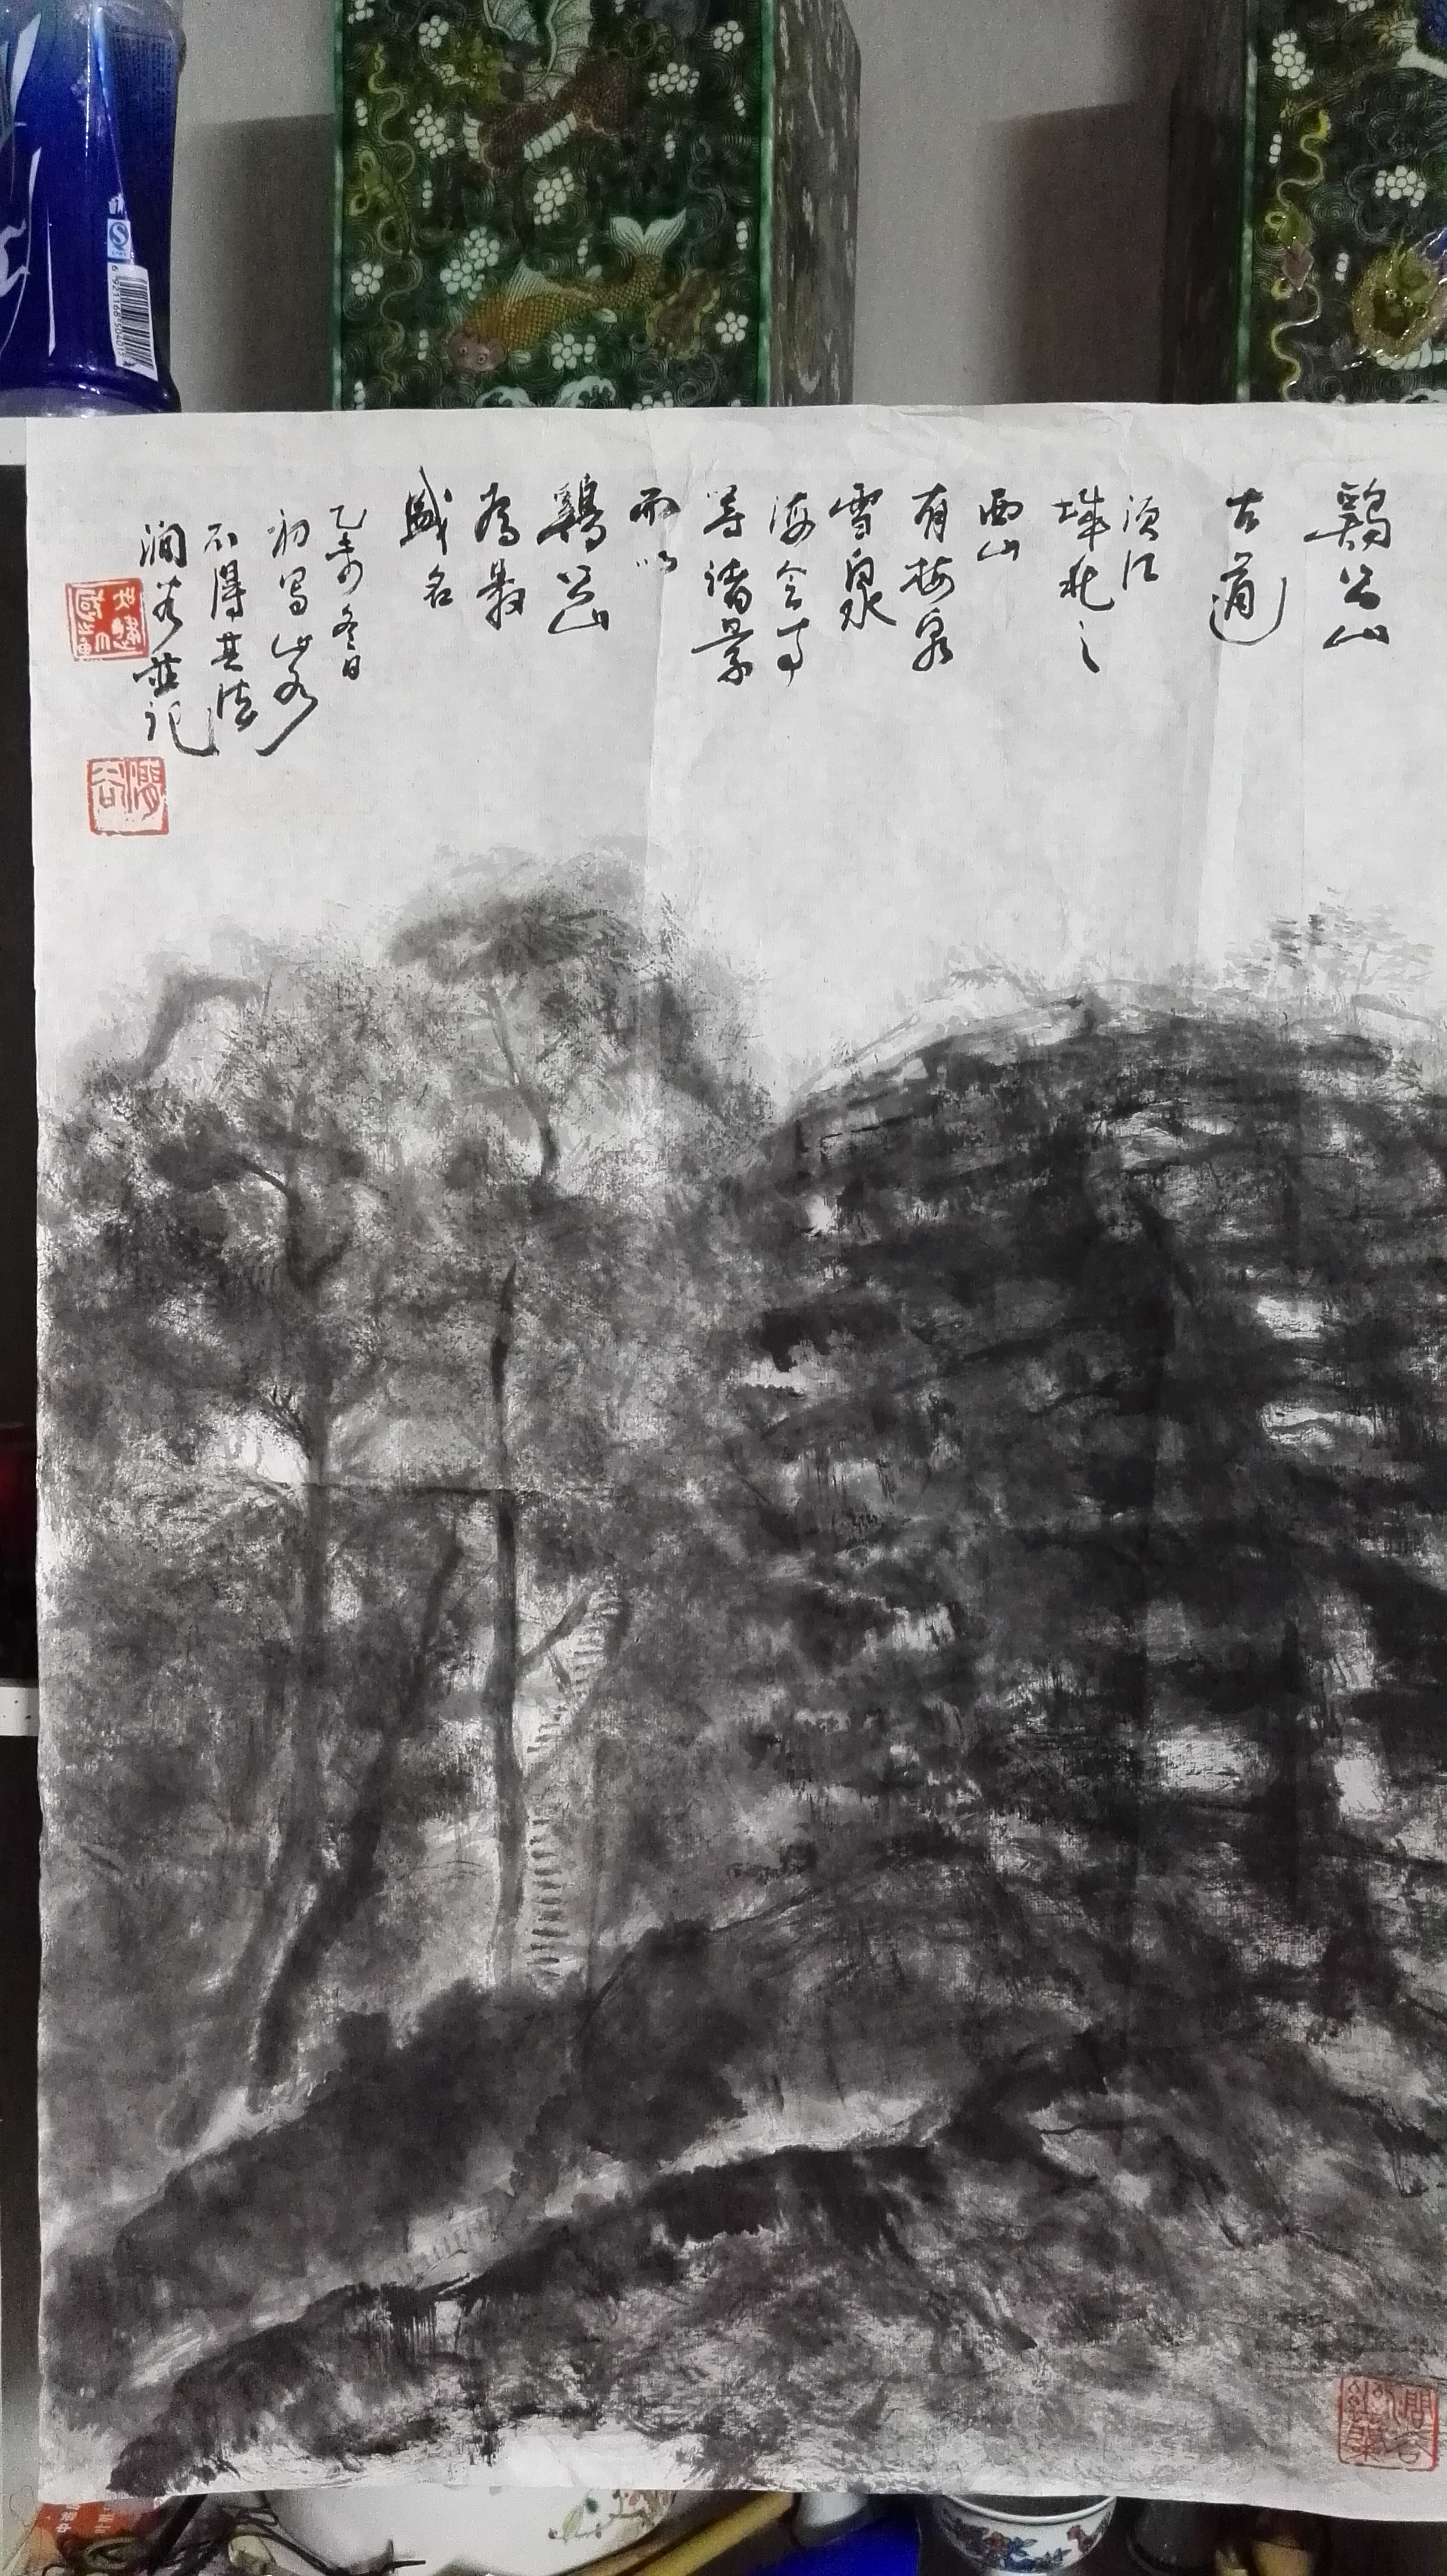 鷄公山
古道
須江
城北之
西山
有梅泉
雪泉
海会寺
等諸景
而以
鷄公山
為最
盛名
乙未冬日
初写山
不得其法
澗谷並記
澗谷